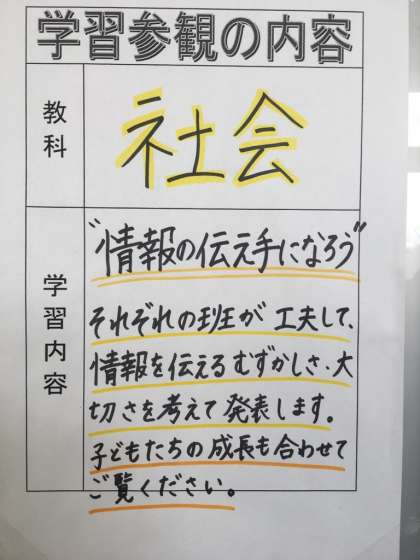 学習参観の内容
教科
社会
学習内容
"情報の伝え手になろう"
それぞれの班が工夫して、
情報を伝えるむずかしさ、大
切さを考えて発表します。
子どもたちの成長も合わせて
ご覧ください。